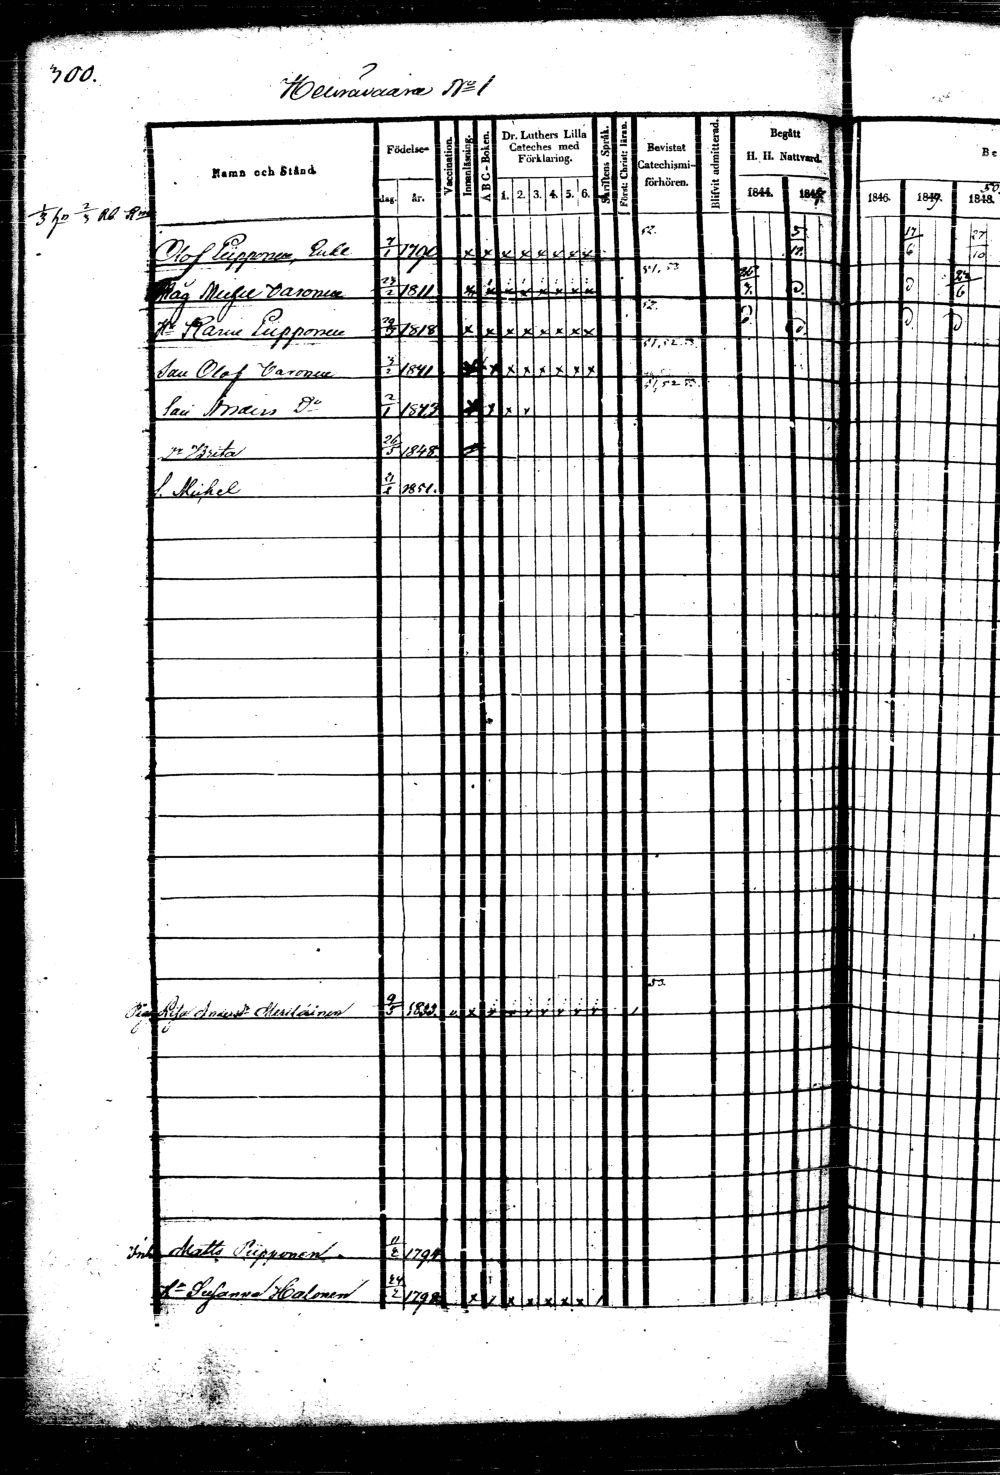 300.
Heinävaara No 1
Namn och Stånd.
Födelse-
dag. år.
Vaccination.
Innanläsning.
ABC-Boken.
Dr. Luthers Lilla
Cateches med
Förklaring.
1. 2. 3. 4. 5. 6.
Skriftens Språk.
Först: Christ: läran.
Bevistat
Catechismi-
förhören.
Blifvit admitterad.
Begått
H. H. Nattvard.
1844.
Be
1846. 1849. 1848. 50
1/3 2/3 Rb
Olof Piipponen, Enkl 7/1 1790 x x x x x x x x 52. 5/12 17/6 27/10
Måg Michel Varonen 24/2 1811 x x x x x x x x 51, 53 23/6
Hu Karin Piipponen 1818 x x x x x x x x 52.
Son Olof Varonen 3/2 1841 x x x x x x x x 51, 52 53
Son Anders Do 2/1 1843 51, 52 53
Dr Brita 26/5 1848
S. Michel 1851.
Pig. Rita Andersdr Meriläinen 9/5 1833 53.
Inh. Matts Piipponen 11/2 1794
Hu Susanna Halonen 24/2 1798 x x x x x x